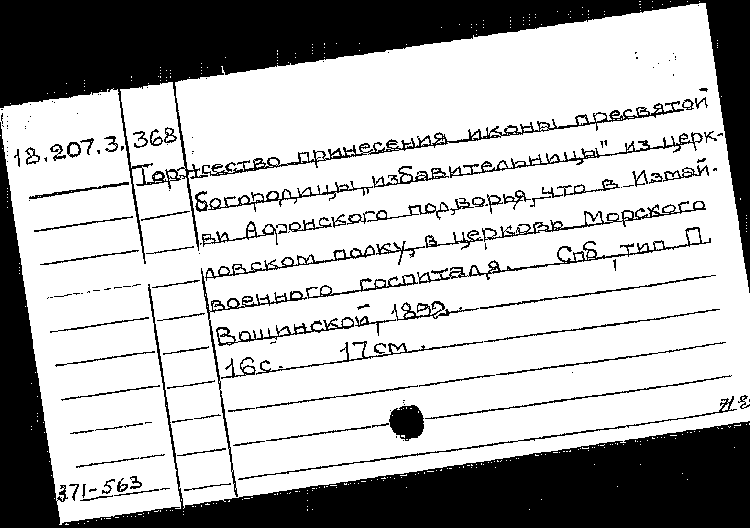 18.207.3.368
Торжество принесения иконы пресвятой
богородицы „избавительницы" из церк-
ви Афонского подворья, что в Измай-
ловском полку, в церковь Морского
военного госпиталя. Спб, тип. П.
Вощинской, 1892.
16с. 17см.
371-563